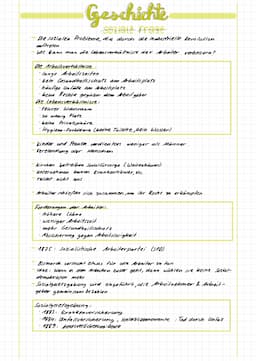 Geschichte
Soziale Frage
- Die sozialen Probleme, die durch die industrielle Revolution
auftraten
- Wie kann man die Lebensverhältnisse der Arbeiter verbessern?
Die Arbeitsverhältnisse:
- lange Arbeitszeiten
- kein Gesundheitsschutz am Arbeitsplatz
- häufige Unfälle am Arbeitsplatz
- keine Rechte gegenüber dem Arbeitgeber
Die Lebensverhältnisse:
- teurer Wohnraum
- zu wenig Platz
- keine Privatsphäre
- Hygiene-Probleme (keine Toilette, kein Wasser)
Kinder und Frauen verdienten weniger als Männer
Kirchen betreiben
Unternehmen bauen Krankenhäuser, etc.
reicht nicht aus
Arbeiter schließen sich zusammen, um ihr Recht zu erkämpfen
Forderungen der Arbeiter:
- höhere Löhne
- weniger Arbeitszeit
- mehr Gesundheitsschutz
- Absicherung gegen Arbeitslosigkeit
- 1875: Sozialistische Arbeiterpartei (SPD)
- Bismarck versucht etwas für die Arbeiter zu tun
- wenn es den Arbeitern besser geht, dann wählen sie keine Sozial-
demokraten mehr
- Sozialgesetzgebung wird eingeführt, die Arbeitnehmer & Arbeit-
geber gemeinsam bezahlen
Sozialgesetzgebung:
- 1883: Krankenversicherung
- 1884: Unfallversicherung,
- 1889: